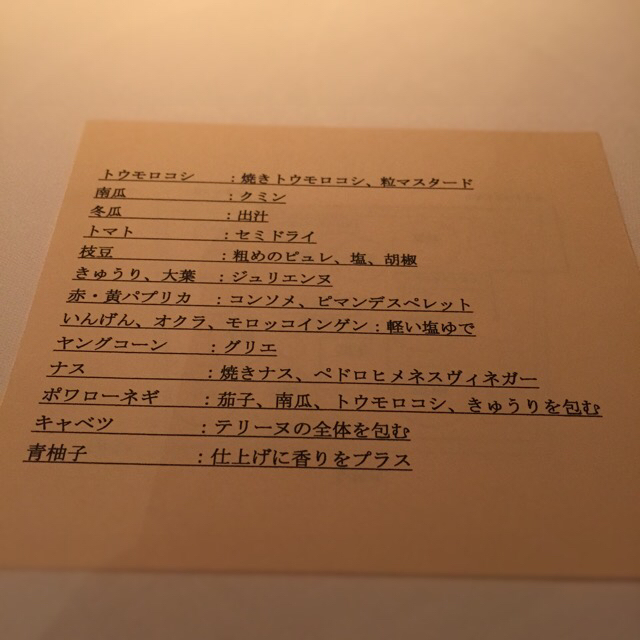 トウモロコシ ：焼きトウモロコシ、粒マスタード
南瓜 ：クミン
冬瓜 ：出汁
トマト ：セミドライ
枝豆 ：粗めのピュレ、塩、胡椒
きゅうり、大葉 ：ジュリエンヌ
赤・黄パプリカ ：コンソメ、ピマンデスペレット
いんげん、オクラ、モロッコインゲン：軽い塩ゆで
ヤングコーン ：グリエ
ナス ：焼きナス、ペドロヒメネスヴィネガー
ポワローネギ ：茄子、南瓜、トウモロコシ、きゅうりを包む
キャベツ ：テリーヌの全体を包む
青柚子 ：仕上げに香りをプラス